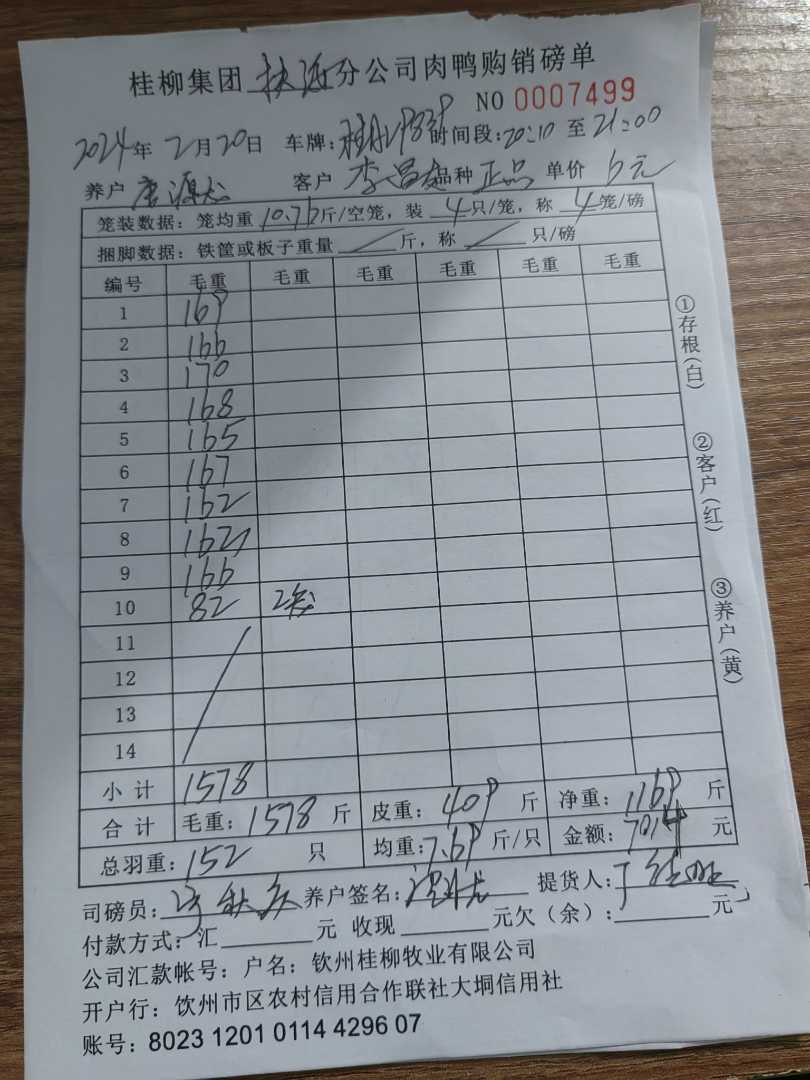 桂柳集团扶海分公司肉鸭购销磅单
NO 0007499
2024年2月20日 车牌: 时间段:20:10 至 21:00
养户 唐源龙 客户 李昌龙 品种 正品 单价 6元
笼装数据: 笼均重 10.76 斤/空笼, 装 4 只/笼, 称 4 笼/磅
捆脚数据: 铁筐或板子重量 / 斤, 称 / 只/磅
编号 毛重 毛重 毛重 毛重 毛重 毛重
1 169
2 166
3 170
4 168
5 165
6 167
7 162
8 162
9 166
10 82 2笼
11
12
13
14
小计 1578
合计 毛重: 1578 斤 皮重: 409 斤 净重: 1169 斤
总羽重: 152 只 均重: 7.69 斤/只 金额: 7014 元
司磅员: 养户签名: 提货人:
付款方式: 汇 元 收现 元欠(余): 元
公司汇款帐号: 户名: 钦州桂柳牧业有限公司
开户行: 钦州市区农村信用合作联社大垌信用社
账号: 8023 1201 0114 4296 07
①存根(白)
②客户(红)
③养户(黄)